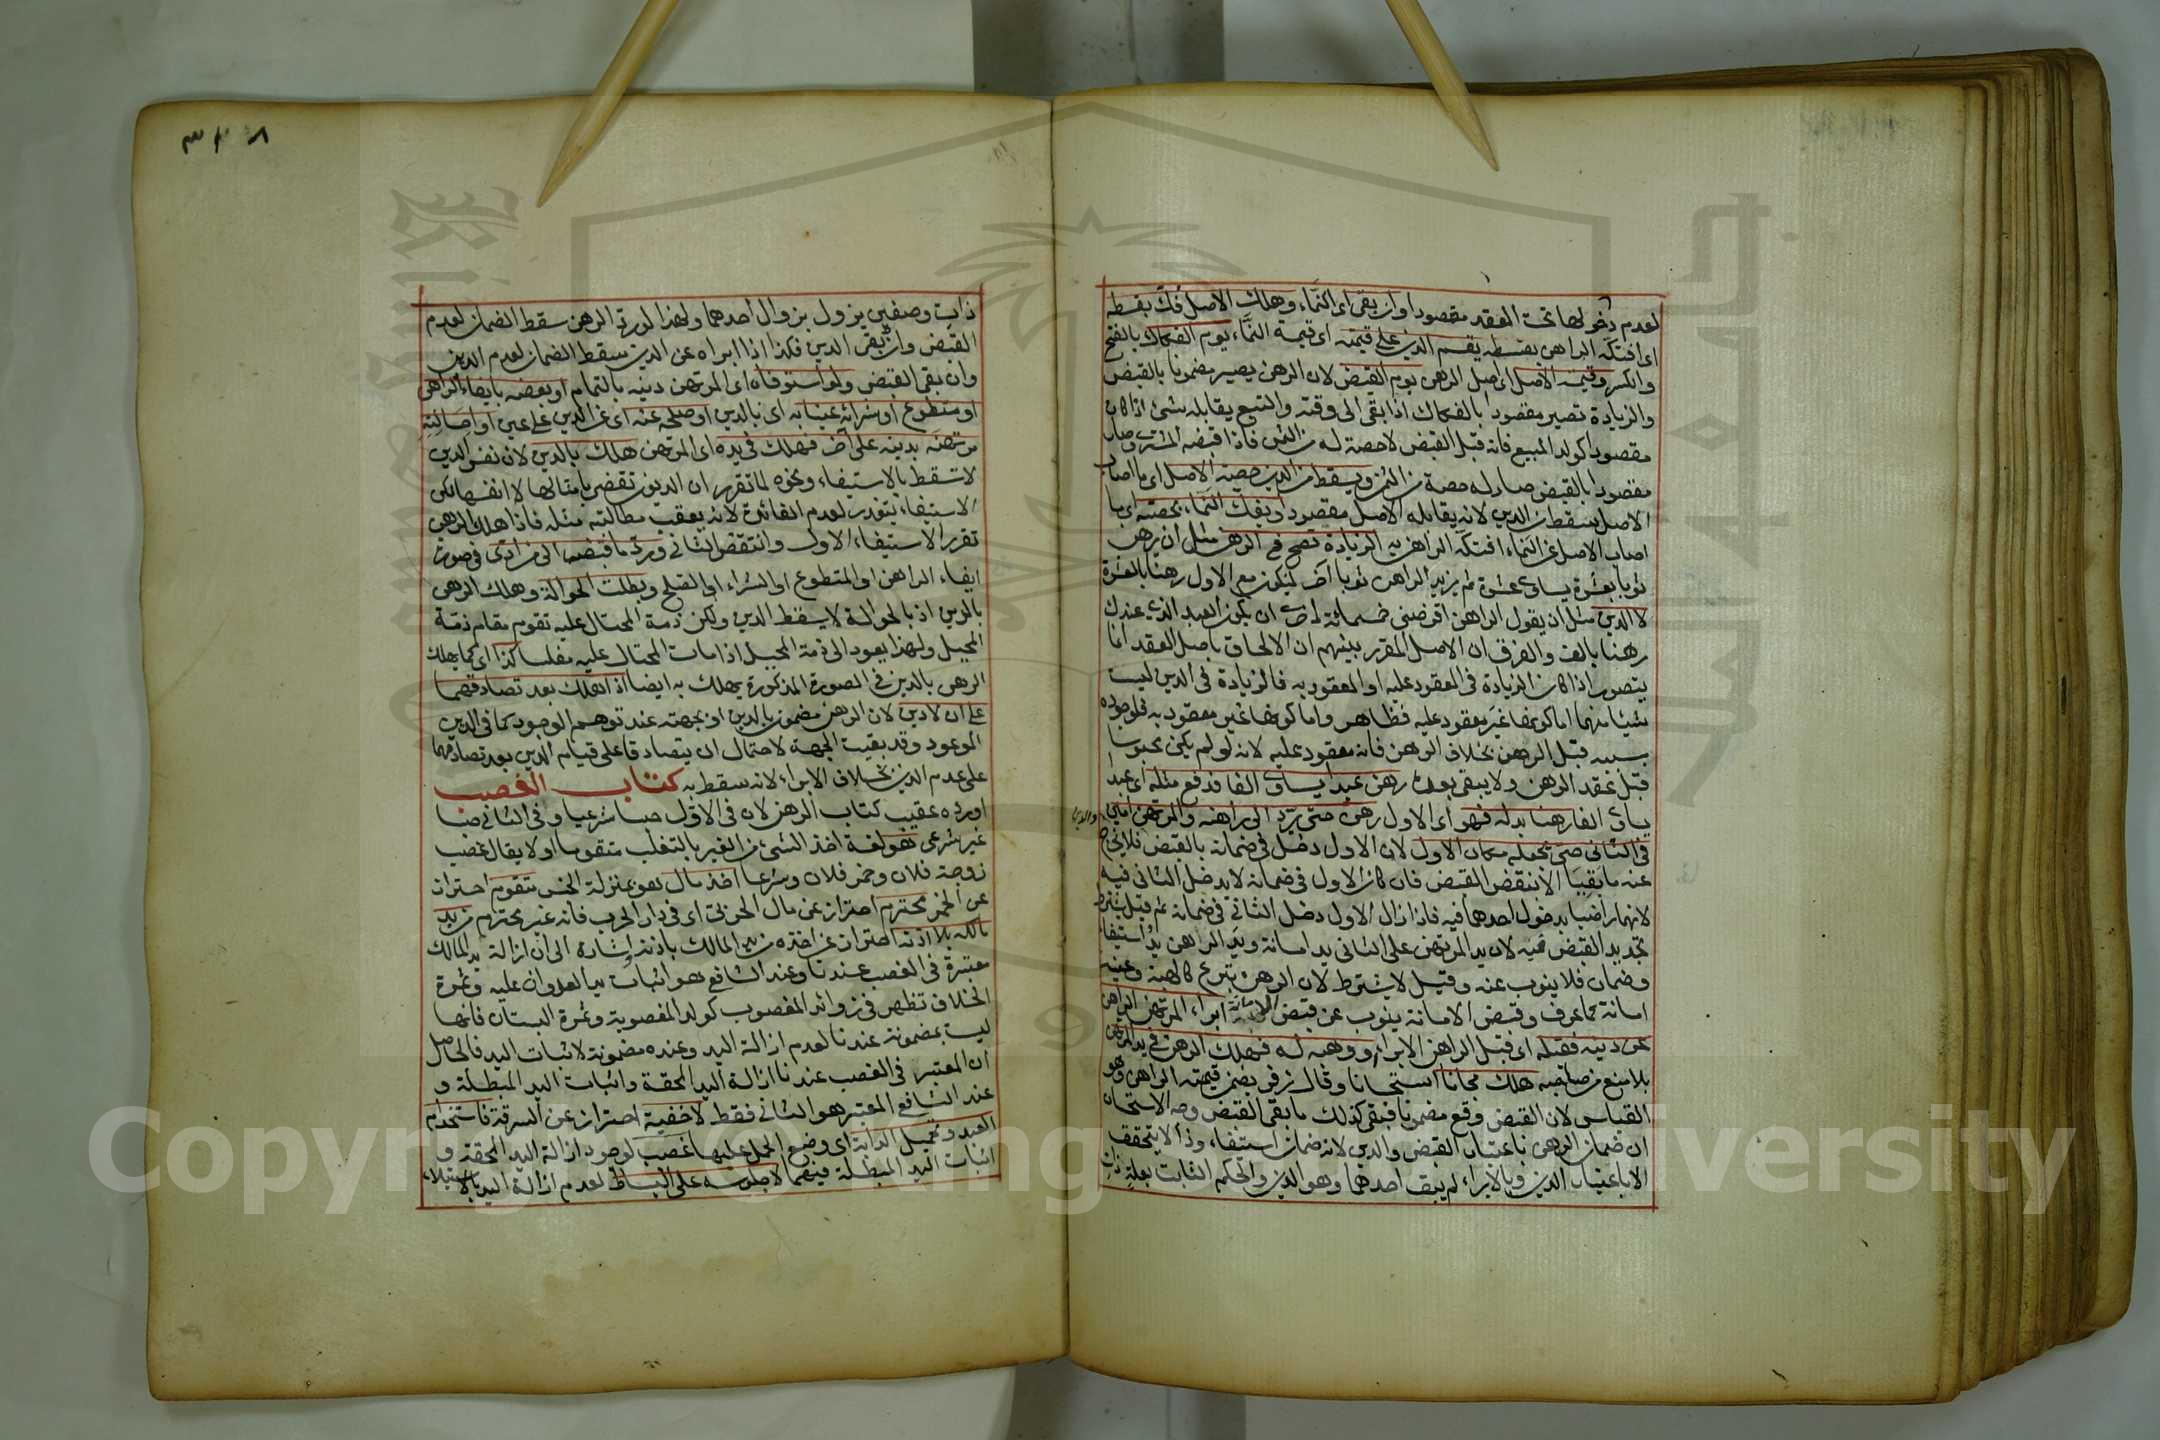 لعدم دخولها تحت العقد مقصودا وان بقى اى النماء وهلك الاصل فك بقسطه
اى افتكه الراهن بقسطه يقسم الدين على قيمته اى قيمة النماء يوم الفكاك بالفتح
والكسر وقيمة الاصل اى اصل الرهن يوم القبض لان الرهن يصير مضمونا بالقبض
والزيادة تصير مقصودا بالفكاك اذا بقى الى وقته والتبع يقابله شئ اذا كان
مقصودا كولد المبيع فانه قبل القبض لا حصة له من الثمن فاذا قبضه المشترى وصار
مقصودا بالقبض صار له حصة من الثمن ويسقط من الدين حصة الاصل اى ما اصاب
الاصل يسقط من الدين لانه يقابله الاصل مقصودا ويفك النماء بحصته اى ما
اصاب الاصل عن النماء افتكه الراهن به الزيادة تصح فى الرهن مثل ان يرهن
ثوبا بعشرة يساوى عشرة ثم يزيد الراهن ثوبا آخر ليكون مع الاول رهنا بالعشرة
لا الدين مثل ان يقول الراهن اقرضنى خمسمائة اخرى ان يكون العبد الذى عندك
رهنا بالف والفرق ان الاصل المقرر بينهم ان الالحاق باصل العقد انما
يتصور اذا كان الزيادة فى العقود عليه او المعقود به فالزيادة فى الدين ليست
شيئا منهما اما كونها غير معقود عليه فظاهر واما كونها غير معقود به فلوجوده
بسببه قبل الرهن بخلاف الرهن فانه معقود عليه لانه لو لم يكن محبوسا
قبل عقد الرهن ولا يبقى بعده رهن عبدا يساوى الفا فدفع مثله اى عبدا
يساوى الفا رهنا بدله فهو اى الاول رهن حتى يرد الى راهنه والمرتهن امين
فى الثانى حتى يجعله مكان الاول لان الاول دخل فى ضمانه بالقبض فلا يخرج
عنه ما بقيا الا بنقض القبض فان كان الاول فى ضمانه لا يدخل الثانى فيه
لانهما رضيا بدخول احدهما فيه فاذا زال الاول دخل الثانى فى ضمانه ثم قيل يشترط
تجديد القبض فيه لان يد المرتهن على الثانى يد امانة ويد الراهن يد استيفاء
وضمان فلا ينوب عنه وقيل لا يشترط لان الرهن تبرع كالهبة وعينه
امانة كما عرف وقبض الامانة ينوب عن قبض الامانة ابراء المرتهن الراهن
عن دينه فقبله اى قبل الراهن الابراء او وهبه له فهلك الرهن فى يد المرتهن
بلا منع من صاحبه هلك مجانا استحسانا وقال زفر يضمن قيمته الراهن وهو
القياس لان القبض وقع مضمونا فبقى كذلك ما بقى القبض وجه الاستحسان
ان ضمان الرهن باعتبار القبض والدين لانه ضمان استيفاء وذا لا يتحقق
الا باعتبار الدين وبالابراء لم يبق احدهما وهو الدين والحكم الثابت بعلة ذات
والدين
٣٢٨
ذات وصفين يزول بزوال احدهما ولهذا لو رد الرهن سقط الضمان لعدم
القبض وان بقى الدين فكذا اذا ابراه عن الدين سقط الضمان لعدم الدين
وان بقى القبض ولو استوفاه اى المرتهن دينه بالتمام او بعضه بايفاء الراهن
او متطوع او شرائه عينا به اى بالدين او صلحه عنه اى عن الدين على عين او احالته
مرتهنه بدينه على آخر فهلك فى يده اى المرتهن هلك بالدين لان نفس الدين
لا تسقط بالاستيفاء ونحوه لما تقرر ان الديون تقضى بامثالها لا انفسها لكن
الاستيفاء يتعذر لعدم الفائدة لانه يعقب مطالبة مثله فاذا هلك الرهن
تقرر الاستيفاء الاول وانتقض الثانى ورد ما قبضه الى من ادى فى صورة
ايفاء الراهن او المتطوع او الشراء او الصلح وبطلت الحوالة وهلك الرهن
بالدين اذ بالحوالة لا يسقط الدين ولكن ذمة المحتال عليه تقوم مقام ذمة
المحيل ولهذا يعود الى ذمة المحيل اذا مات المحتال عليه مفلسا كذا اى كما يهلك
الرهن بالدين فى الصورة المذكورة يهلك به ايضا اذا هلك بعد تصادقهما
على ان لا دين لان الرهن مضمون بالدين او بجهته عند توهم الوجود كما فى الدين
الموعود وقد بقيت الجهة لاحتمال ان يتصادقا على قيام الدين بعد تصادقهما
على عدم الدين بخلاف الابراء لانه سقط به كتاب الغصب
اورده عقيب كتاب الرهن لان فى الاول حبسا شرعيا وفى الثانى حبسا
غير شرعى هو لغة اخذ الشئ من الغير بالتغلب متقوما او لا يقال غصب
زوجة فلان وخمر فلان وشرعا اخذ مال هو بمنزلة الجنس متقوم احتراز
عن الخمر محترم احتراز عن مال الحربى اى فى دار الحرب فانه غير محترم من يد
مالكه بلا اذنه احتراز عن اخذه من يد المالك باذنه اشارة الى ان ازالة يد المالك
معتبرة فى الغصب عندنا وعند الشافعى هو اثبات يد العدوان عليه وثمرة
الخلاف تظهر فى زوائد المغصوب كولد المغصوبة وثمرة البستان فانها
ليست بمضمونة عندنا لعدم ازالة اليد وعنده مضمونة لاثبات اليد فالحاصل
ان المعتبر فى الغصب عندنا ازالة اليد المحقة واثبات اليد المبطلة و
عند الشافعى المعتبر هو الثانى فقط لا خفية احتراز عن السرقة فاستخدام
العبد وتحميل الدابة اى وضع الحمل عليها غصب لوجود ازالة اليد المحقة و
اثبات اليد المبطلة فيهما لا جلوسه على البساط لعدم ازالة اليد بالاستيلاء
Copyright © King University